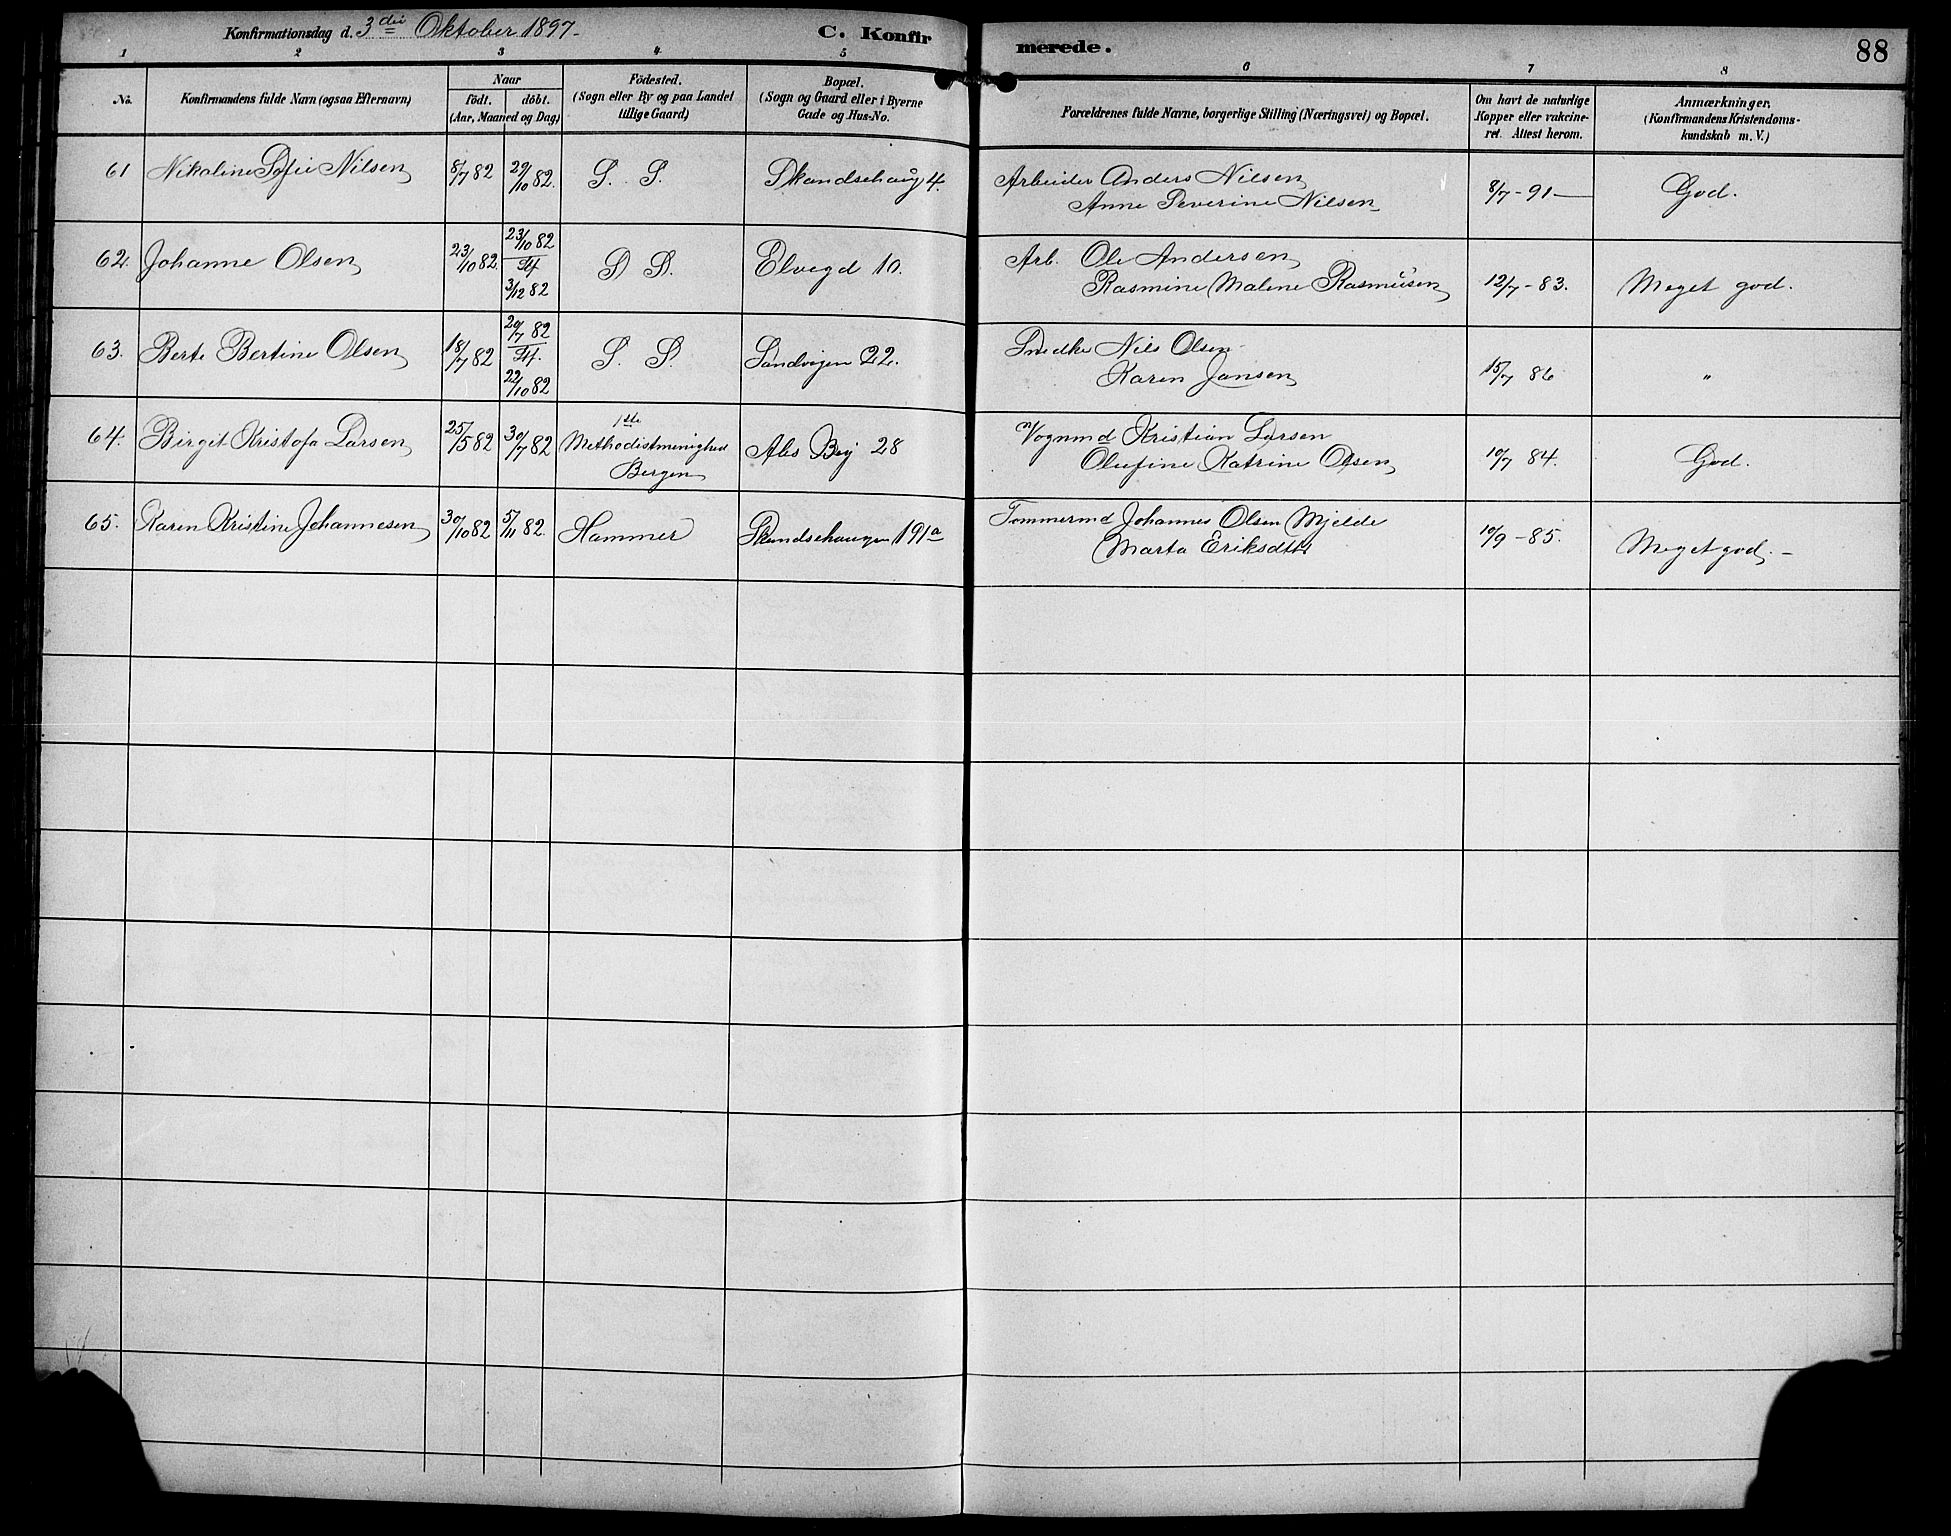 Konfirmationsdag d. 3die Oktober 1897.
C. Konfirmerede.
88
1 2 3 4 5 6 7 8
No.
Konfirmandens fulde Navn (ogsaa Efternavn)
Naar
födt. döbt.
(Aar, Maaned og Dag)
Födested.
(Sogn eller By og paa Landet
tillige Gaard)
Bopæl.
(Sogn og Gaard eller i Byerne
Gade og Hus-No.
Forældrenes fulde Navne, borgerlige Stilling (Næringsvei) og Bopæl.
Om havt de naturlige
Kopper eller vakcine-
ret. Attest herom.
Anmærkninger.
(Konfirmandens Kristendoms-
kundskab m. V.)
61 Nikoline Sofie Nilsen 8/7 82 29/10 82. S. S. Skandsehaug 4. Arbeider Anders Nilsen 8/7 - 91 — God.
Anne Severine Nilsen
62. Johanne Olsen 23/10 82. 23/10 82 S S. Elvegd 10. Arb. Ole Andersen
3/12 82 Rasmine Malene Rasmusen 12/7 - 83. Meget god.
63. Berte Bertine Olsen 18/7 82 20/7 82 S S. Sandvigen 22. Snedker Nils Olsen
22/10 82 Karen Jansen 15/7 86 "
64. Birget Kristofa Larsen 25/5 82 30/7 82 1ste
Methodistmenighed
Bergen
28 Vognmd Kristian Larsen
Olufine Katrine Olsen 10/7 84. God.
65. Karen Kristine Johannesen 30/10 82 5/11 82. Hammer Skandsehaugen 191a Tømmermd Johannes Olsen Mjelde
Marta Eriksdttr 10/9 - 85. Meget god. -